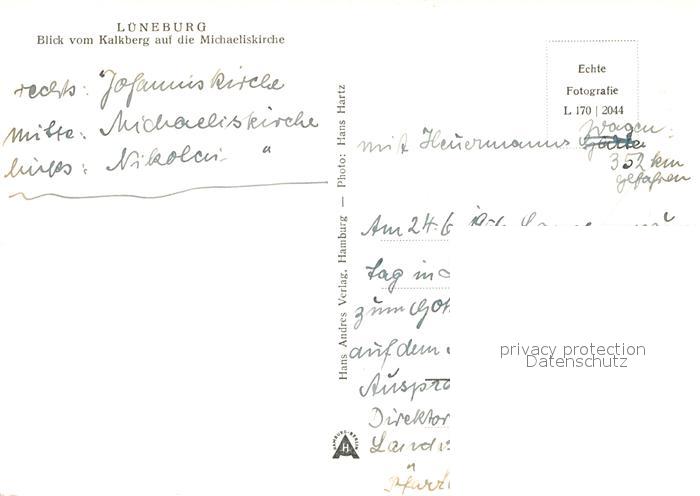 LÜNEBURG
Blick vom Kalkberg auf die Michaeliskirche
rechts: Johanniskirche
Mitte: Michaeliskirche
links: Nikolai- "
Hans Andres Verlag, Hamburg — Photo: Hans Hartz
HAMBURG-BERLIN
Echte
Fotografie
L 170 | 2044
mit Heuermanns Wagen:
352 km
gefahren
Am 24.6
tag in
zum Got
auf dem
Ausspra
Direktor
Land
Pfarr
privacy protection
Datenschutz